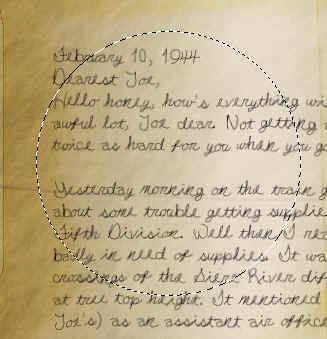 February 10, 1944
Dearest Joe,
Hello honey, how's everything wi
awful lot, Joe dear. Not getting
twice as hard for you when you go
Yesterday morning on the train g
about some trouble getting supplie
Fifth Division. Well then I rea
badly in need of supplies. It wa
crossings of the River dif
at tree top height. It mentioned
Joe's) as an assistant air office